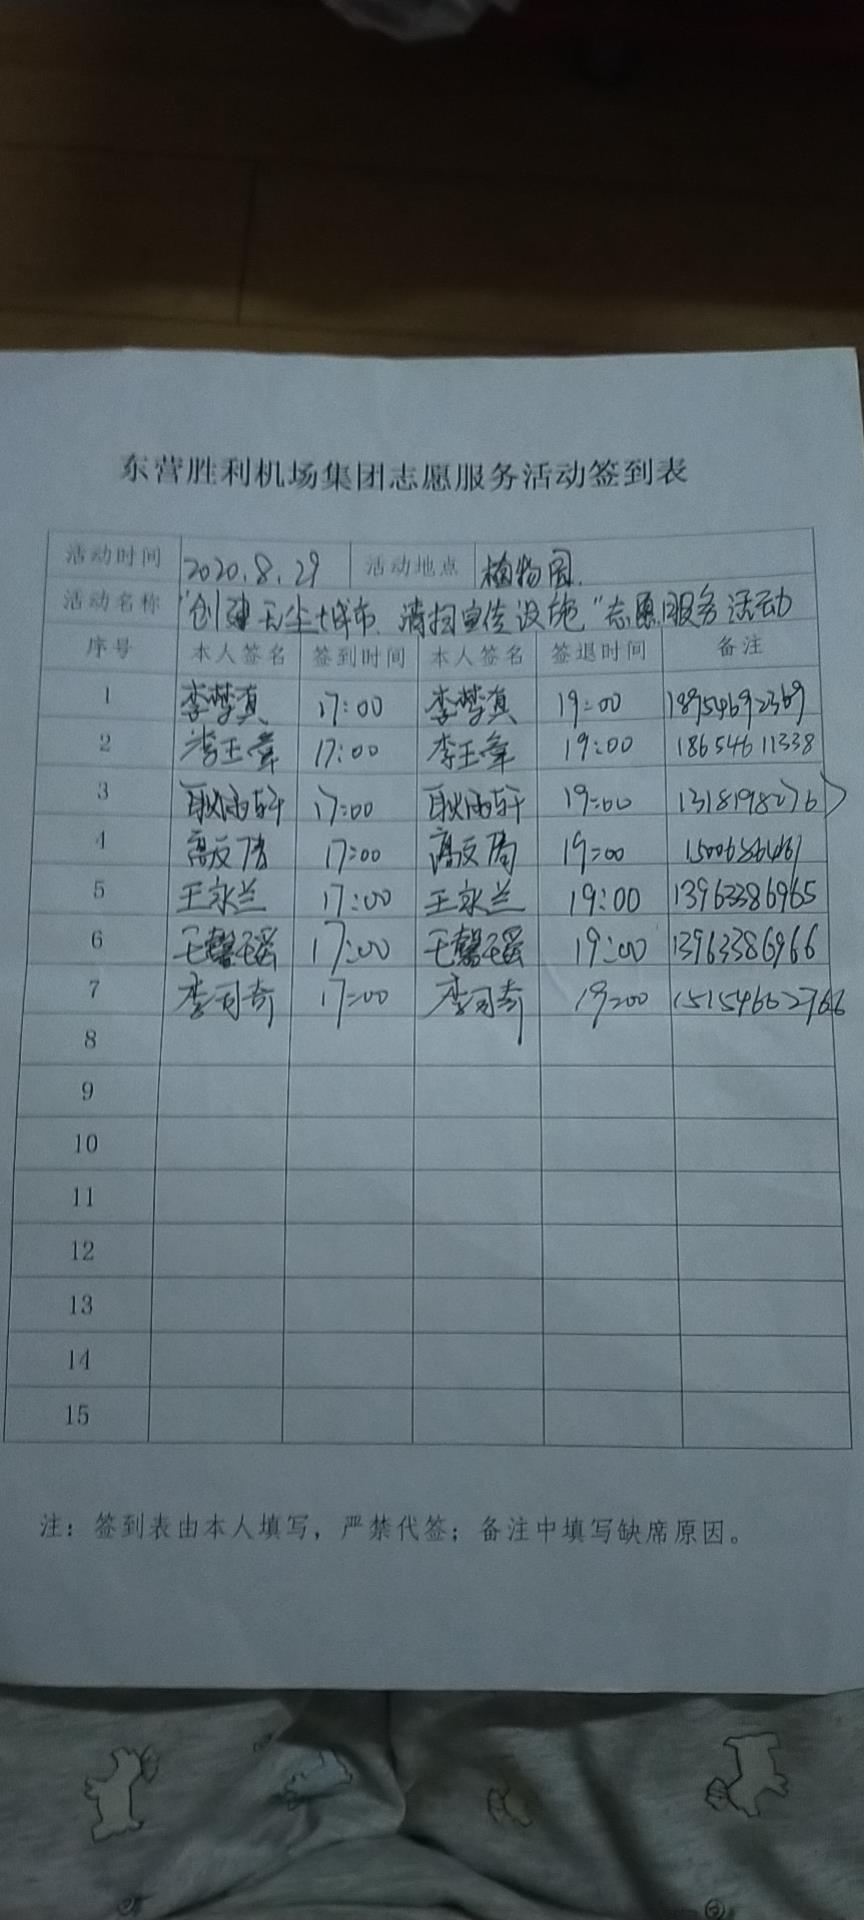 东营胜利机场集团志愿服务活动签到表
活动时间 2020.8.29 活动地点 植物园.
活动名称 "创建无尘土城市、清扫宣传设施"志愿服务活动
序号 本人签名 签到时间 本人签名 签退时间 备注
1 李梦真 17:00 李梦真 19:00 18954692369
2 李玉肇 17:00 李玉肇 19:00 18654611338
3 耿雨轩 17:00 耿雨轩 19:00 13181982767
4 17:00 19:00
5 王永兰 17:00 王永兰 19:00 13963386965
6 王馨瑶 17:00 王馨瑶 19:00 13963386966
7 李司奇 17:00 李司奇 19:00 15154662766
8
9
10
11
12
13
14
15
注：签到表由本人填写，严禁代签；备注中填写缺席原因。